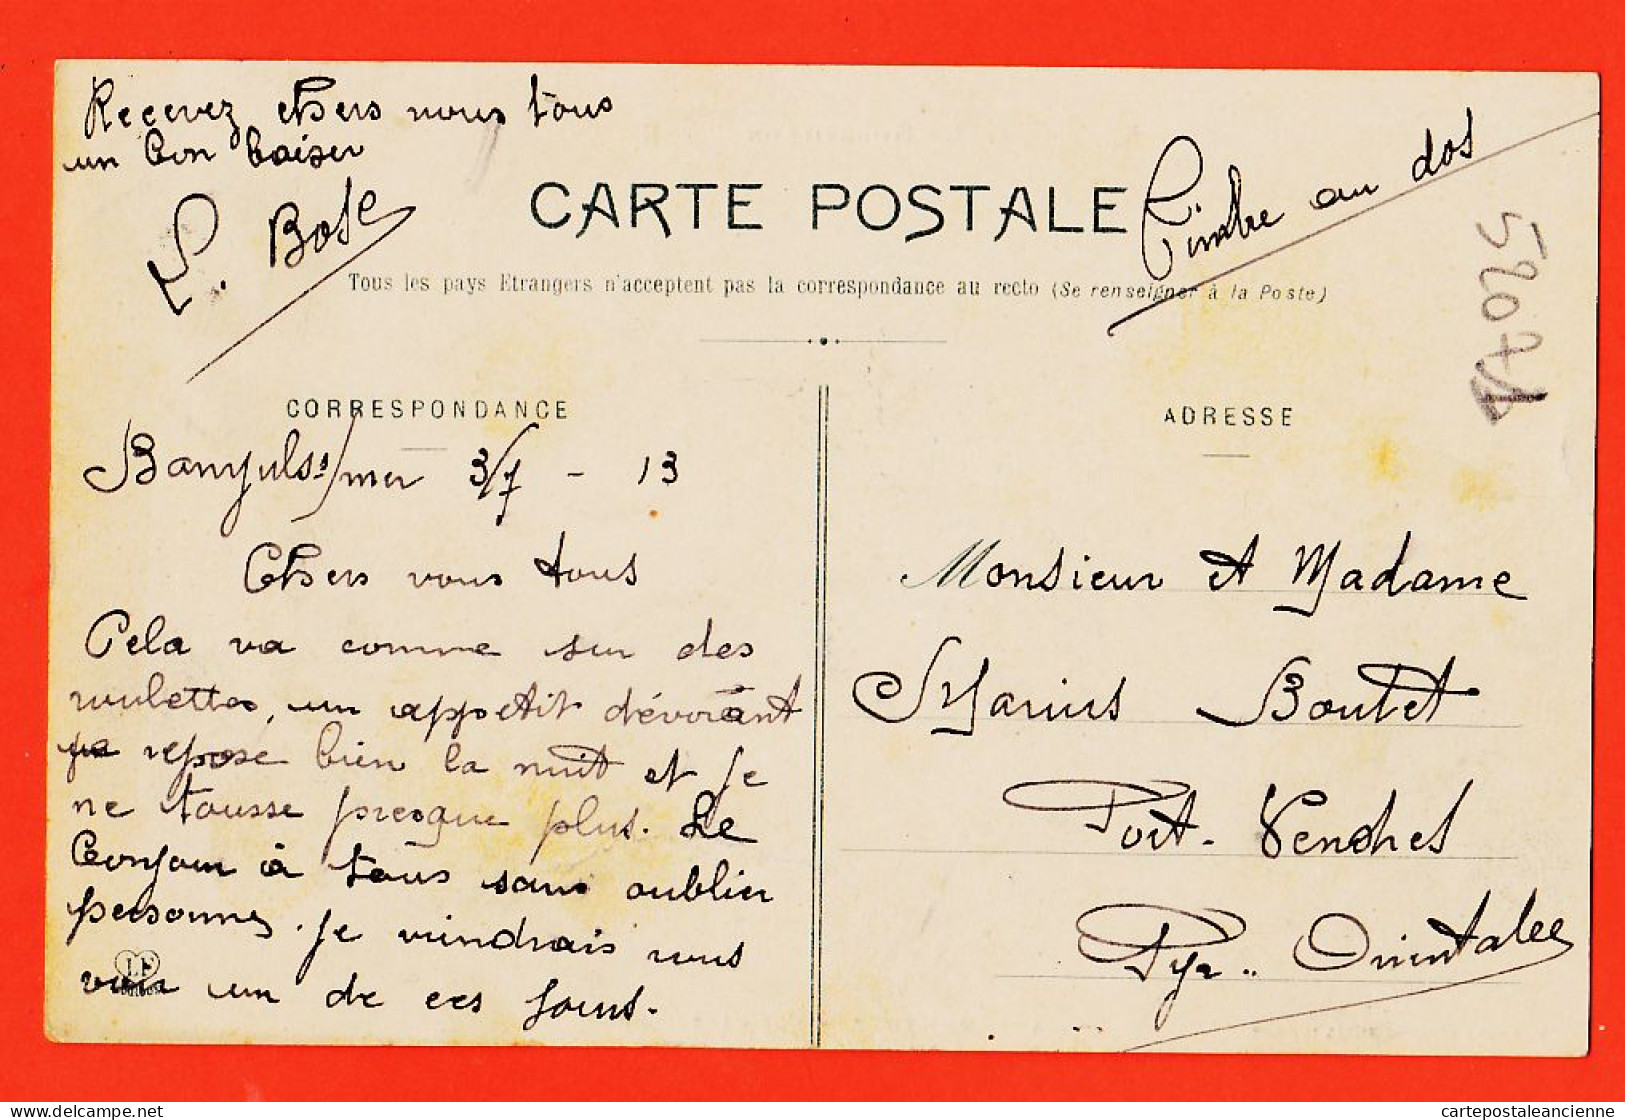 Recevez chers vous tous
un bon baiser
L. Bose
CARTE POSTALE
Timbre au dos
Tous les pays Etrangers n'acceptent pas la correspondance au recto (Se renseigner à la Poste)
CORRESPONDANCE
Banyuls s/mer 3/7 - 13
Chers vous tous
Cela va comme sur des
roulettes, un appetit dévorant
je repose bien la nuit et je
ne tousse presque plus. Le
bonjour à tous sans oublier
personnes. Je viendrais vous
voir un de ces jours.
LF
ADRESSE
Monsieur et Madame
Marius Boutet
Port-Vendres
Pyr.. Orientales
delcampe.net
cartepostaleancienne